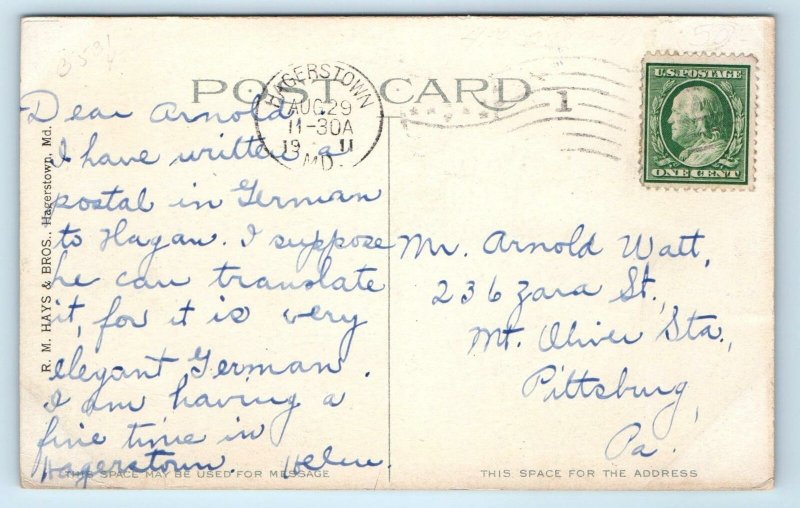 POST CARD
HAGERSTOWN
AUG 29
11-30A
19 11
MD.
1
U.S. POSTAGE
ONE CENT
R. M. HAYS & BROS., Hagerstown, Md.
Dear Arnold:
I have written a
postal in German
to Hagan. I suppose
he can translate
it, for it is very
elegant German.
I am having a
fine time in
Hagerstown. Helen.
Mr. Arnold Watt,
236 Zara St.,
Mt. Oliver Sta.,
Pittsburg,
Pa.
THIS SPACE MAY BE USED FOR MESSAGE
THIS SPACE FOR THE ADDRESS